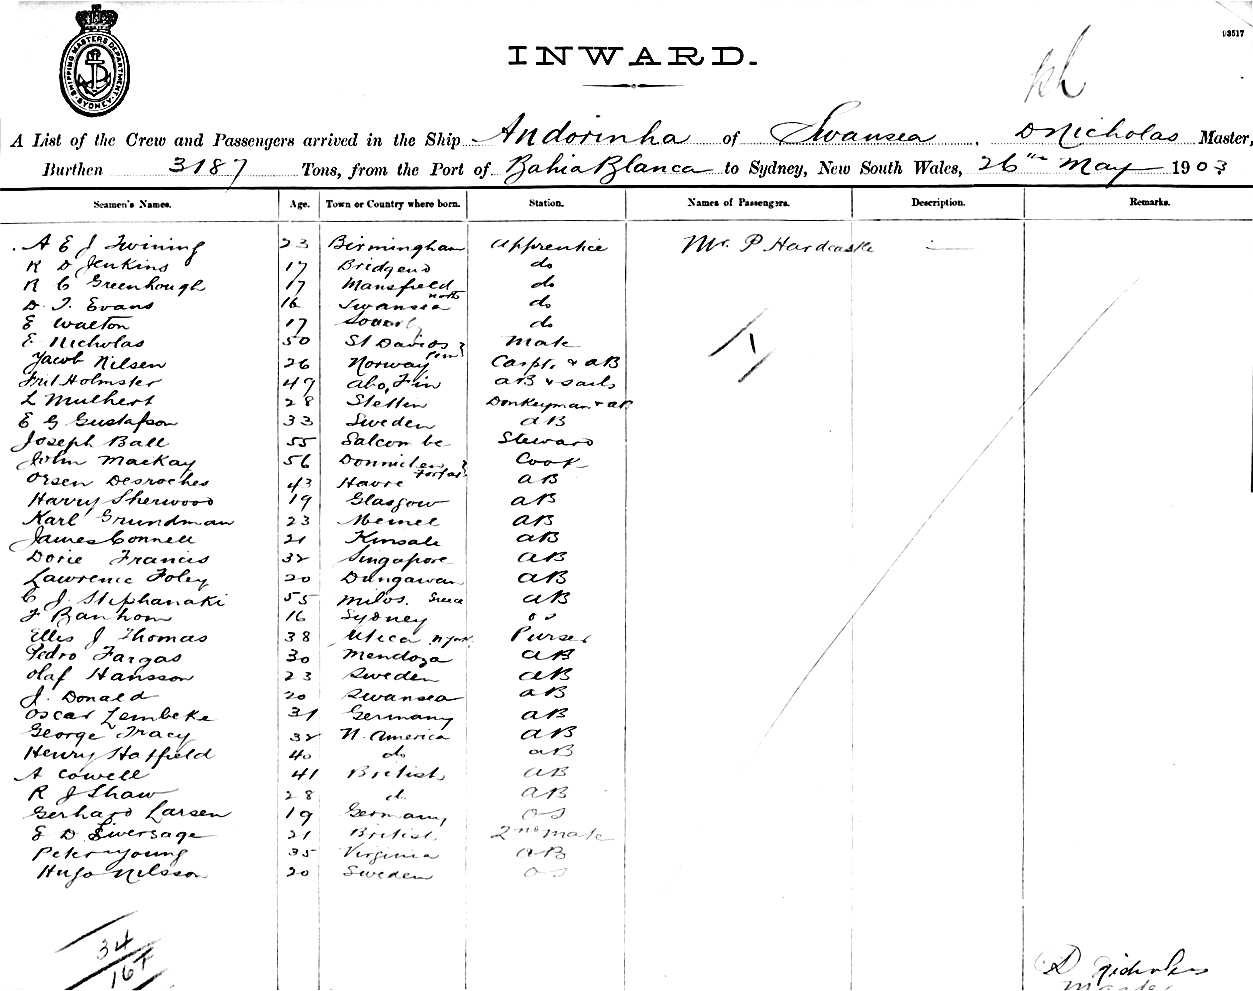 SHIPPING MASTERS DEPARTMENT SYDNEY
03517
INWARD.
A List of the Crew and Passengers arrived in the Ship Andorinha of Swansea, D Nicholas Master,
Burthen 3187 Tons, from the Port of Bahia Blanca to Sydney, New South Wales, 26th May 1903
Seamen's Names. Age. Town or Country where born. Station. Names of Passengers. Description. Remarks.
A E J Twining 23 Birmingham Apprentice Mr. P Hardcastle
R D Jenkins 17 Bridgend do
R C Greenhough 17 Mansfield do
D. T. Evans 16 Swansea do
E Walton 17 do
E Nicholas 50 St Davids Pem Mate
Jacob Nilsen 26 Norway Carpt. & AB
Holmster 47 Abo, Fin AB & Sails
L Mulhert 28 Stettin Donkeyman & AB
E G Gustafson 33 Sweden AB
Joseph Ball 55 Salcombe Steward
John Mackay 56 Forfar Cook
Orsen Desroches 43 Havre AB
Harry Sherwood 19 Glasgow AB
Karl Grundman 23 Memel AB
James Connell 21 Kinsale AB
Dorie Francis 32 Singapore AB
Lawrence Foley 20 Dungarvan AB
C J. Stephanaki 55 Milos. Greece AB
F Banhom 16 Sydney OS
Ellis J Thomas 38 Utica N York Purser
Pedro Fargas 30 Mendoza AB
Olaf Hansson 23 Sweden AB
J. Donald 20 Swansea AB
Oscar Lembcke 31 Germany AB
George Tracy 32 N. America AB
Henry Hatfield 40 do AB
A Cowell 41 British AB
R J Shaw 28 d. AB
Gerhard Larsen 19 Germany OS
E D Liversage 21 British 2nd Mate
Peter Young 35 Virginia AB
Hugo Nilsson 20 Sweden OS
34
16
D Nicholas
Master